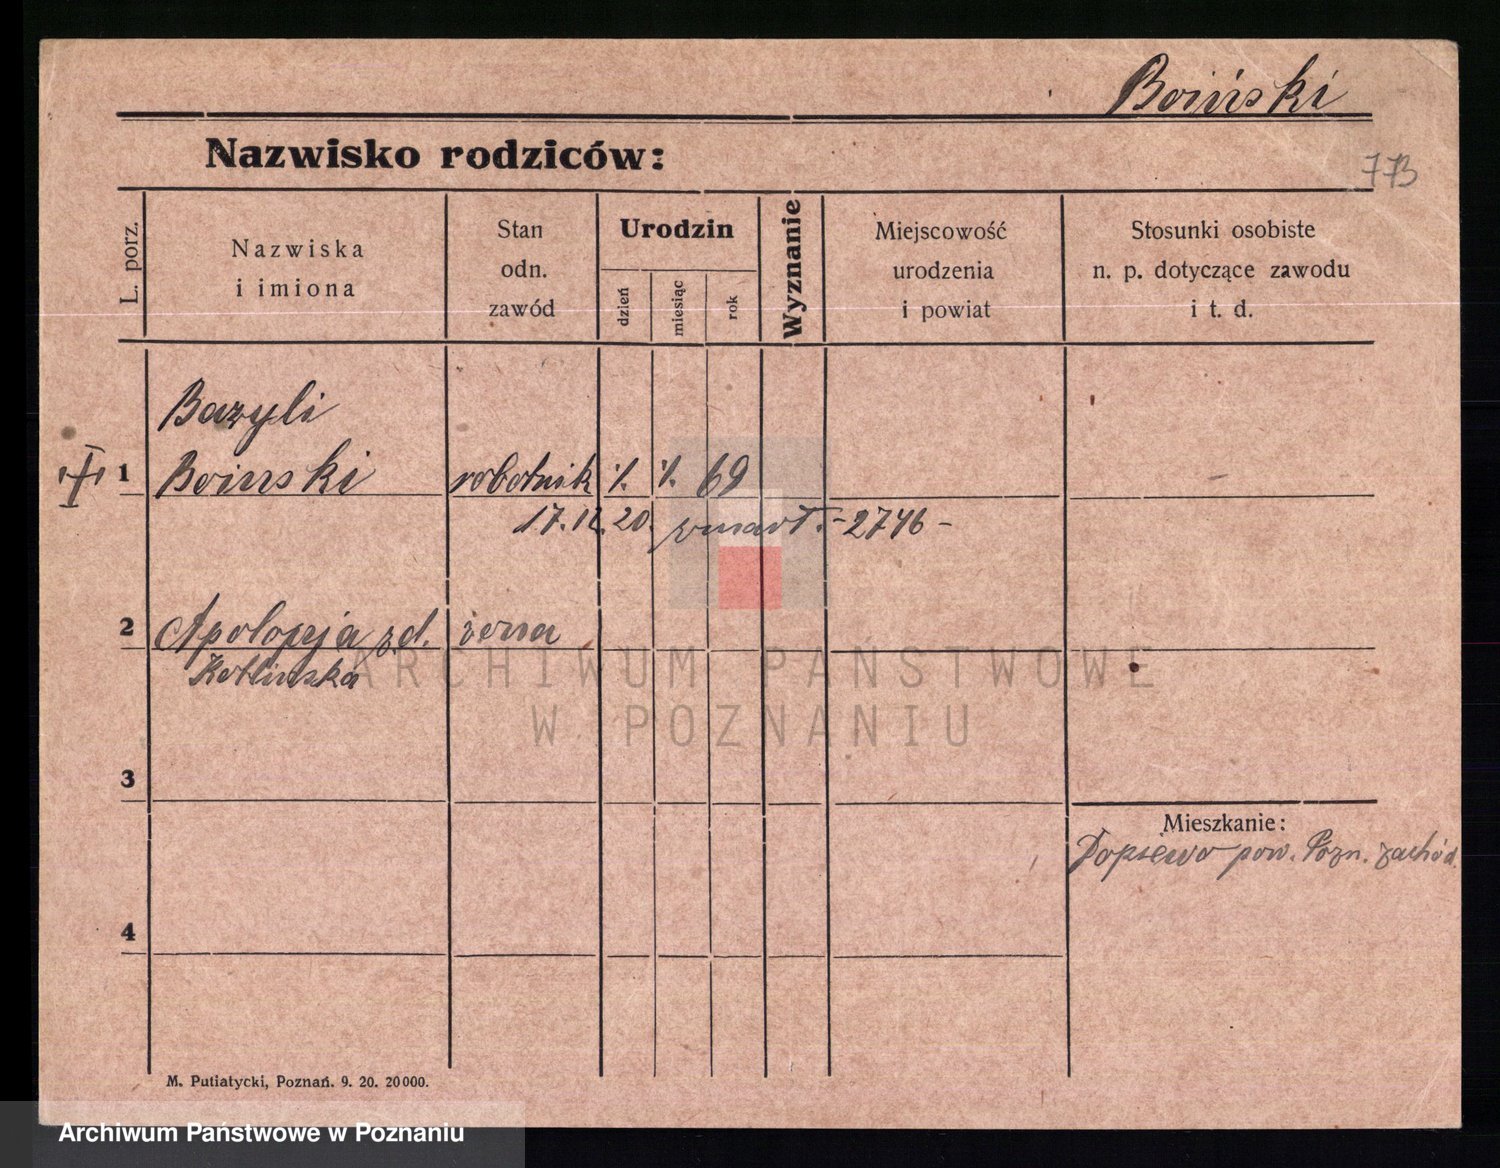 Boiński
Nazwisko rodziców:
773
L. porz.
Nazwiska
i imiona
Stan
odn.
zawód
Urodzin
dzień
miesiąc
rok
Wyznanie
Miejscowość
urodzenia
i powiat
Stosunki osobiste
n. p. dotyczące zawodu
i t. d.
Bazyli
1 Boinski robotnik 1/. 1/. 69
17.12.20. zmarł. - 2746 -
2 Apolonja z.d. żona
Kotlinska
ARCHIWUM PAŃSTWOWE
W POZNANIU
3
Mieszkanie:
Dopiewo pow. Pozn. zachód.
4
M. Putiatycki, Poznań. 9. 20. 20000.
Archiwum Państwowe w Poznaniu